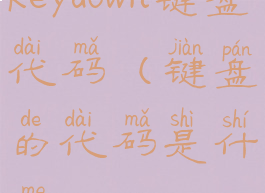 keydown键盘
dài mǎ jiàn pán
代码（键盘
de dài mǎ shì shí
的代码是什
me